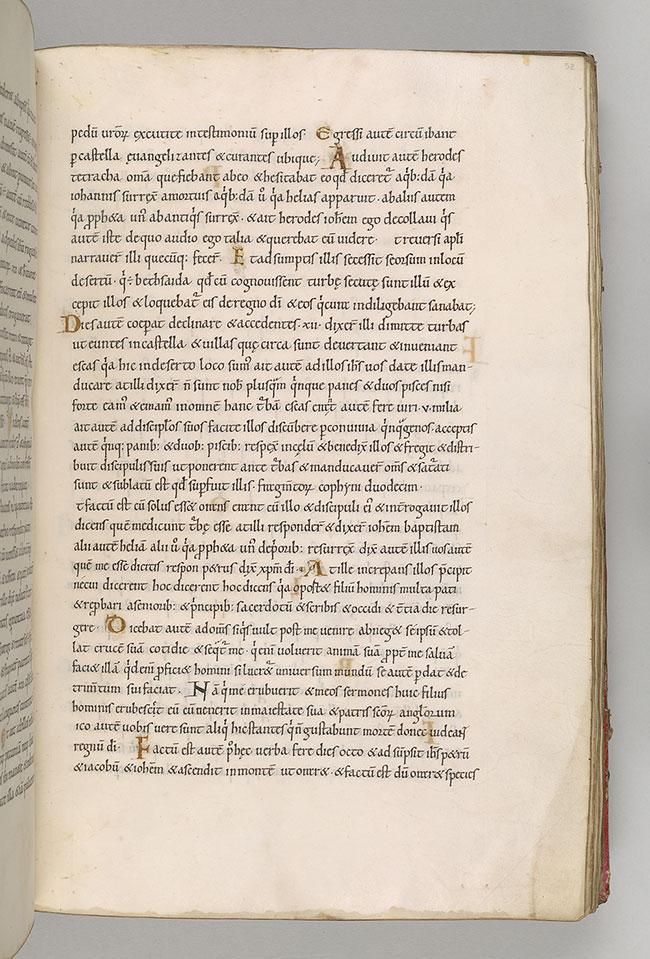 52
pedū ur̄oꝝ excutite intestimoniū sup illos. Egressi autē circū ibant
p castella euangelizantes & curantes ubique; Audiuit autē herodes
tetracha om̄a que fiebant ab eo & hesitabat eo qđ diceret̄ a qb:dā qa
iohannis surrex̄ a mortuis a qb:dā u̓ qa helias apparuit. ab aliis autem
qa ppħa un̄ abantiqis surrex̄. & ait herodes ioh̄em ego decollaui qis
autē iste de quo audio ego talia & querebat eū uidere. t reuersi apli
narrauer̄ illi quecūq: fecer̄. Et adsumptis illis secessit seorsum in locū
desertū. q̄: bethsaida qđ cū cognouissent turbę secutę sunt illū & ex
cepit illos & loquebat̄ eis de regno dī & eos qi cura indiligebant sanabat;
Dies autē coeperat declinare & accedentes .xii. dixer̄ illi dimitte turbas
ut euntes in castella & uillas quę circa sunt deuertant & inueniant
escas qa hic in deserto loco sum̄. ait autē ad illos ih̄s uos date illis man-
ducare at illi dixer̄ n̄ sunt nob̄ plusqm̄ qinque panes & duos pisces nisi
forte eam̄ & emam̄ in omnem hanc t̄bā escas erāt̄ autē fere uiri .v. milia
ait autē ad discip̄los suos facite illos discūbere p conuiuia qinqgenos. acceptis
autē qinq: panib: & duob: piscib: respex̄ in celū & benedix̄ illos & fregit & distri-
buit discipulis suis ut ponerent ante t̄bas & manducauer̄ oms̄ & sat̄ati
sunt & sublatū est qđ supfuit illis. fragm̄toꝝ cophyni duodecim.
t factū est cū solus ess& orans erant cū illo & discipuli eī & int̄rogauit illos
dicens quē me dicunt t̄bę esse at illi responder̄ & dixer̄ ioh̄em baptistam
alii autē heliā alii u̓ qa ppħa un̄ de priorib: resurrex̄ dix̄ autē illis uos autē
quē me esse dicitis respon petrus dix̄ xp̄m dī. At ille increpans illos pcipit
ne cui dicerent hoc dicens qa oport& filiū hominis multa pati
& rep̄bari a seniorib: & pncipib: sacerdotū & scribis & occidi & t̄tia die resur-
gere. Dicebat autē ad om̄s si qis uult post me uenire abneg& se ipsū & tol-
lat crucē suā cotidie & seqt̄ me. qi enī uoluerit animā suā
faci& illā. qđ enī pfici& homini si lucr& uniuersum mundū se autē pdat & de
trim̄tum sui faciat. Nā qi me erubuerit & meos sermones hunc filius
hominis erubescet cū cū uenerit in maiestate sua & patris & sc̄oꝝ angl̄orum
ico autē uobis uere sunt aliqi hic stantes qi n̄ gustabunt mortē donec uideant
regnū dī. Factū est autē p̄ hęc uerba fere dies octo & adsūpsit ih̄s petrū
& iacobū & ioh̄em & ascendit in montē ut orar&. & factū est dū orar& species